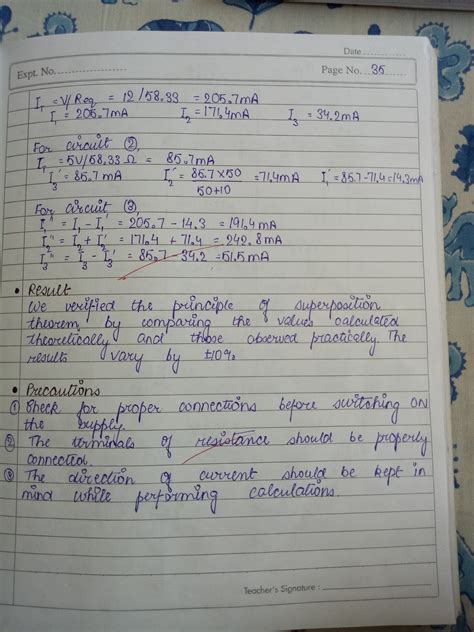 Date
Expt. No.
Page No. 35
I₁ = V/Req = 12/58.33 = 205.7mA
I₁ = 205.7mA I₂ = 171.4mA I₃ = 34.2mA
For circuit ②,
I₁ = 5V/58.33 Ω = 85.7mA
I₃' = 85.7 mA I₂' = 85.7 × 50 / 50+10 = 71.4mA I₁' = 85.7-71.4 = 14.3mA
For circuit ③,
I₁" = I₁ - I₁' = 205.7 - 14.3 = 191.4 mA
I₂" = I₂ + I₂' = 171.4 + 71.4 = 242.8 mA
I₃" = I₃' - I₃ = 85.7 - 34.2 = 51.5 mA
• Result
We verified the principle of superposition
theorem, by comparing the values calculated
theoretically and those observed practically. The
results vary by ±10%
• Precautions
① Check for proper connections before switching ON
the supply.
② The terminals of resistance should be properly
connected.
③ The direction of current should be kept in
mind while performing calculations.
Teacher's Signature :